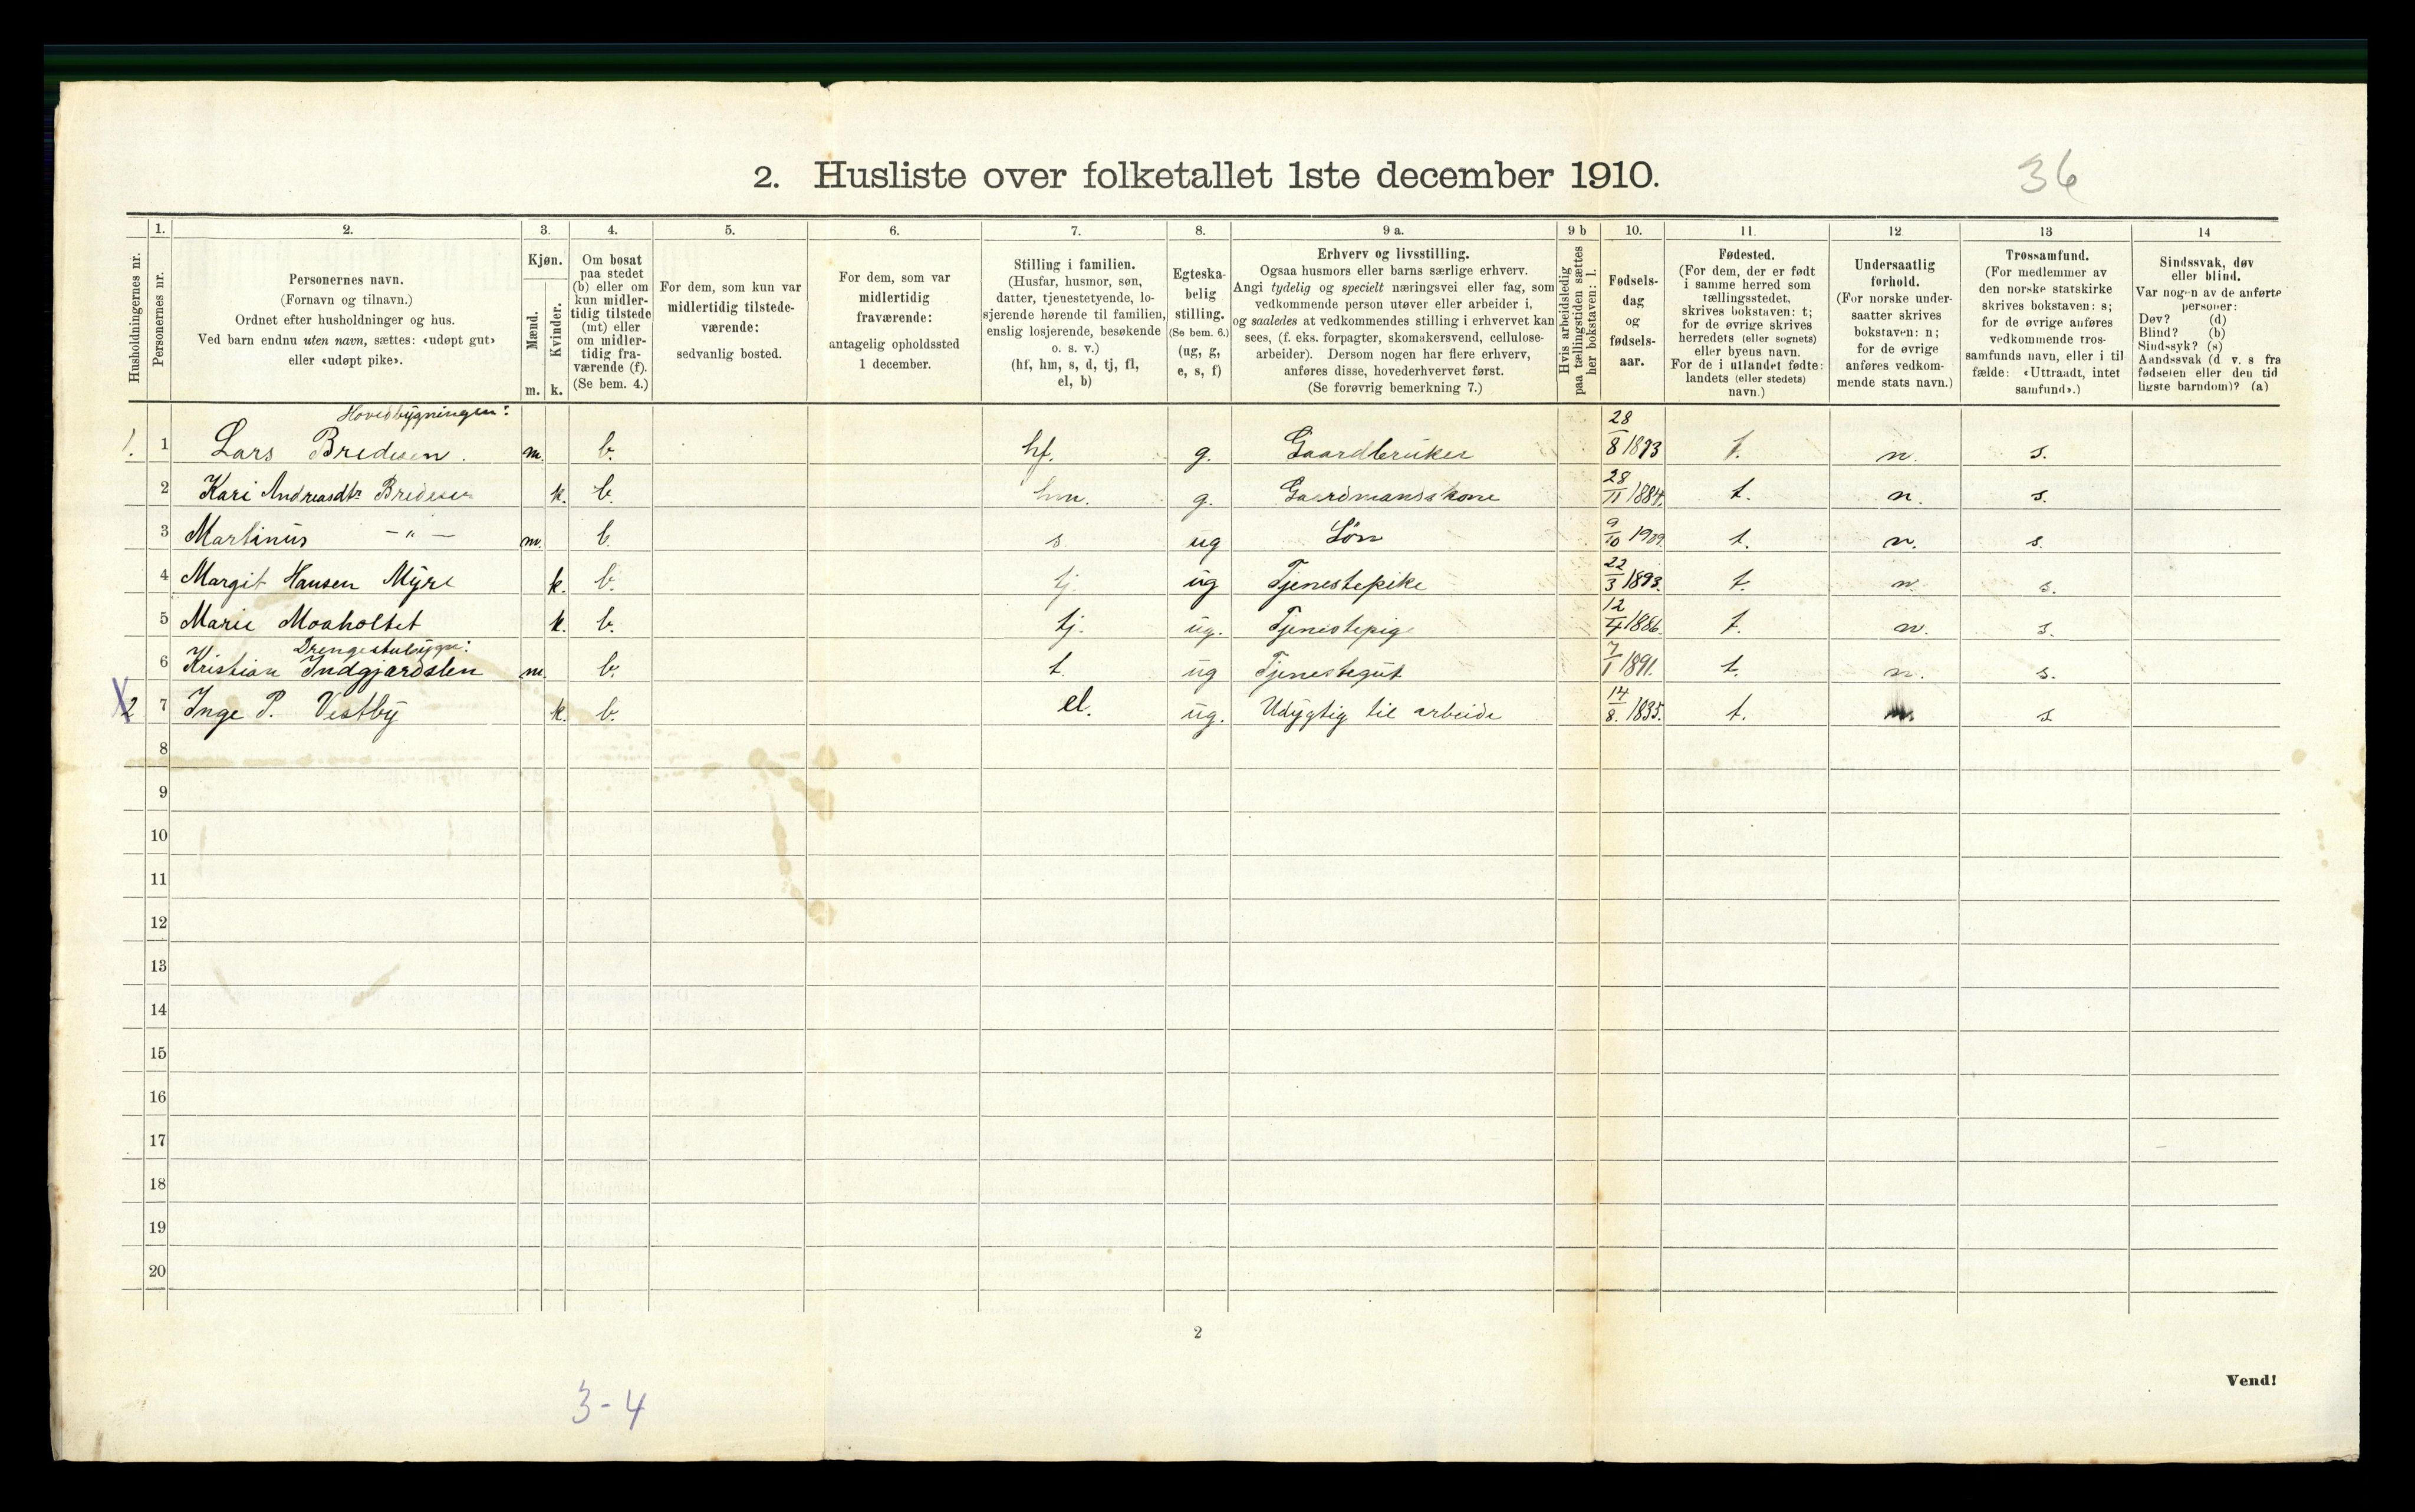 2. Husliste over folketallet 1ste december 1910.
36
1. 2. 3. 4. 5. 6. 7. 8. 9 a. 9 b 10. 11. 12 13 14
Husholdningernes nr.
Personernes nr.
Personernes navn.
(Fornavn og tilnavn.)
Ordnet efter husholdninger og hus.
Ved barn endnu uten navn, sættes: «udøpt gut»
eller «udøpt pike».
Kjøn.
Mænd.
Kvinder.
m. k.
Om bosat
paa stedet
(b) eller om
kun midler-
tidig tilstede
(mt) eller
om midler-
tidig fra-
værende (f).
(Se bem. 4.)
For dem, som kun var
midlertidig tilstede-
værende:
sedvanlig bosted.
For dem, som var
midlertidig
fraværende:
antagelig opholdssted
1 december.
Stilling i familien.
(Husfar, husmor, søn,
datter, tjenestetyende, lo-
sjerende hørende til familien,
enslig losjerende, besøkende
o. s. v.)
(hf, hm, s, d, tj, fl,
el, b)
Egteska-
belig
stilling.
(Se bem. 6.)
(ug, g,
e, s, f)
Erhverv og livsstilling.
Ogsaa husmors eller barns særlige erhverv.
Angi tydelig og specielt næringsvei eller fag, som
vedkommende person utøver eller arbeider i,
og saaledes at vedkommendes stilling i erhvervet kan
sees, (f. eks. forpagter, skomakersvend, cellulose-
arbeider). Dersom nogen har flere erhverv,
anføres disse, hovederhvervet først.
(Se forøvrig bemerkning 7.)
Hvis arbeidsledig
paa tællingstiden sættes
her bokstaven: l.
Fødsels-
dag
og
fødsels-
aar.
Fødested.
(For dem, der er født
i samme herred som
tællingsstedet,
skrives bokstaven: t;
for de øvrige skrives
herredets (eller sognets)
eller byens navn.
For de i utlandet fødte:
landets (eller stedets)
navn.)
Undersaatlig
forhold.
(For norske under-
saatter skrives
bokstaven: n;
for de øvrige
anføres vedkom-
mende stats navn.)
Trossamfund.
(For medlemmer av
den norske statskirke
skrives bokstaven: s;
for de øvrige anføres
vedkommende tros-
samfunds navn, eller i til
fælde: «Uttraadt, intet
samfund».)
Sindssvak, døv
eller blind.
Var nogen av de anførte
personer:
Døv? (d)
Blind? (b)
Sindssyk? (s)
Aandssvak (d v. s fra
fødselen eller den tid
ligste barndom)? (a)
Hovedbygningen:
1. 1 Lars Bredesen. m. b. hf. g. Gaardbruker 28/8 1893 t. n. s.
2 Kari Andreasdtr Bredesen k. b. hm. g. Gaardmandskone 28/11 1884. t. n. s.
3 Martinus - " - m. b. s ug Søn 9/10 1909. t. n. s.
4 Margit Hansen Myre k. b. tj. ug Tjenestepike 22/3 1893. t. n. s.
5 Marie Moaholtet k. b. tj. ug. Tjenestepige 12/4 1886. t. n. s.
Drengestubygn:
6 Kristian Indgjærdslen m. b. t. ug Tjenestegut 7/1 1891. t. n. s.
X2 7 Inge P. Vestby k. b. el. ug. Udygtig til arbeide 14/8. 1835. t. n. s.
8
9
10
11
12
13
14
15
16
17
18
19
20
2
Vend!
3-4